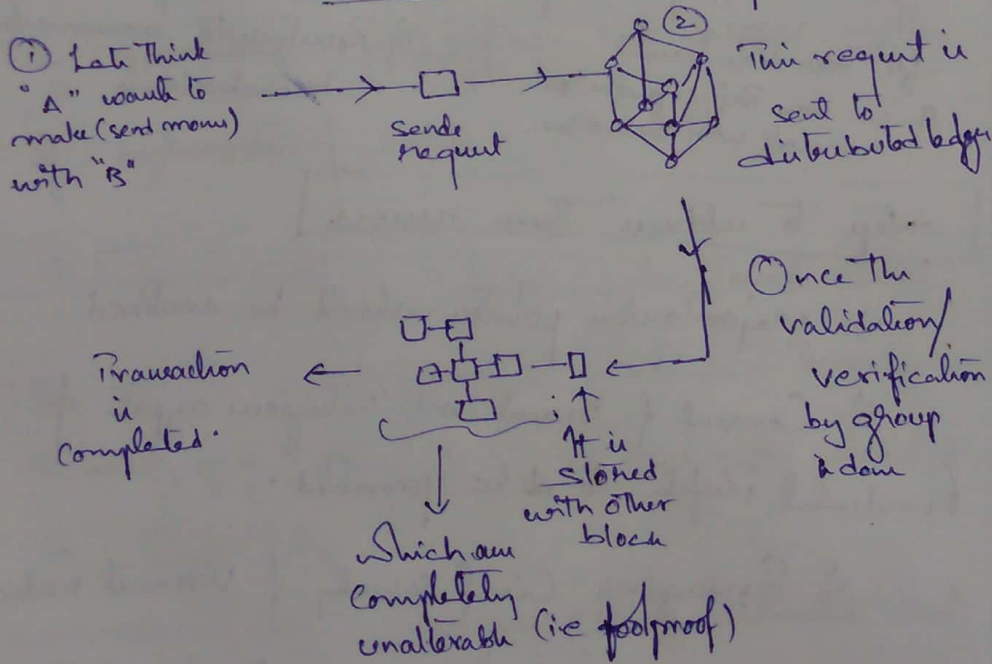 ① Lets Think
"A" wants to
make (send money)
with "B"
sends
request
②
This request is
sent to
distributed ledger
Once the
validation/
verification
by group
is done
It is
stored
with other
block
Transaction
is
completed.
which are
completely
unalterable (i.e foolproof)